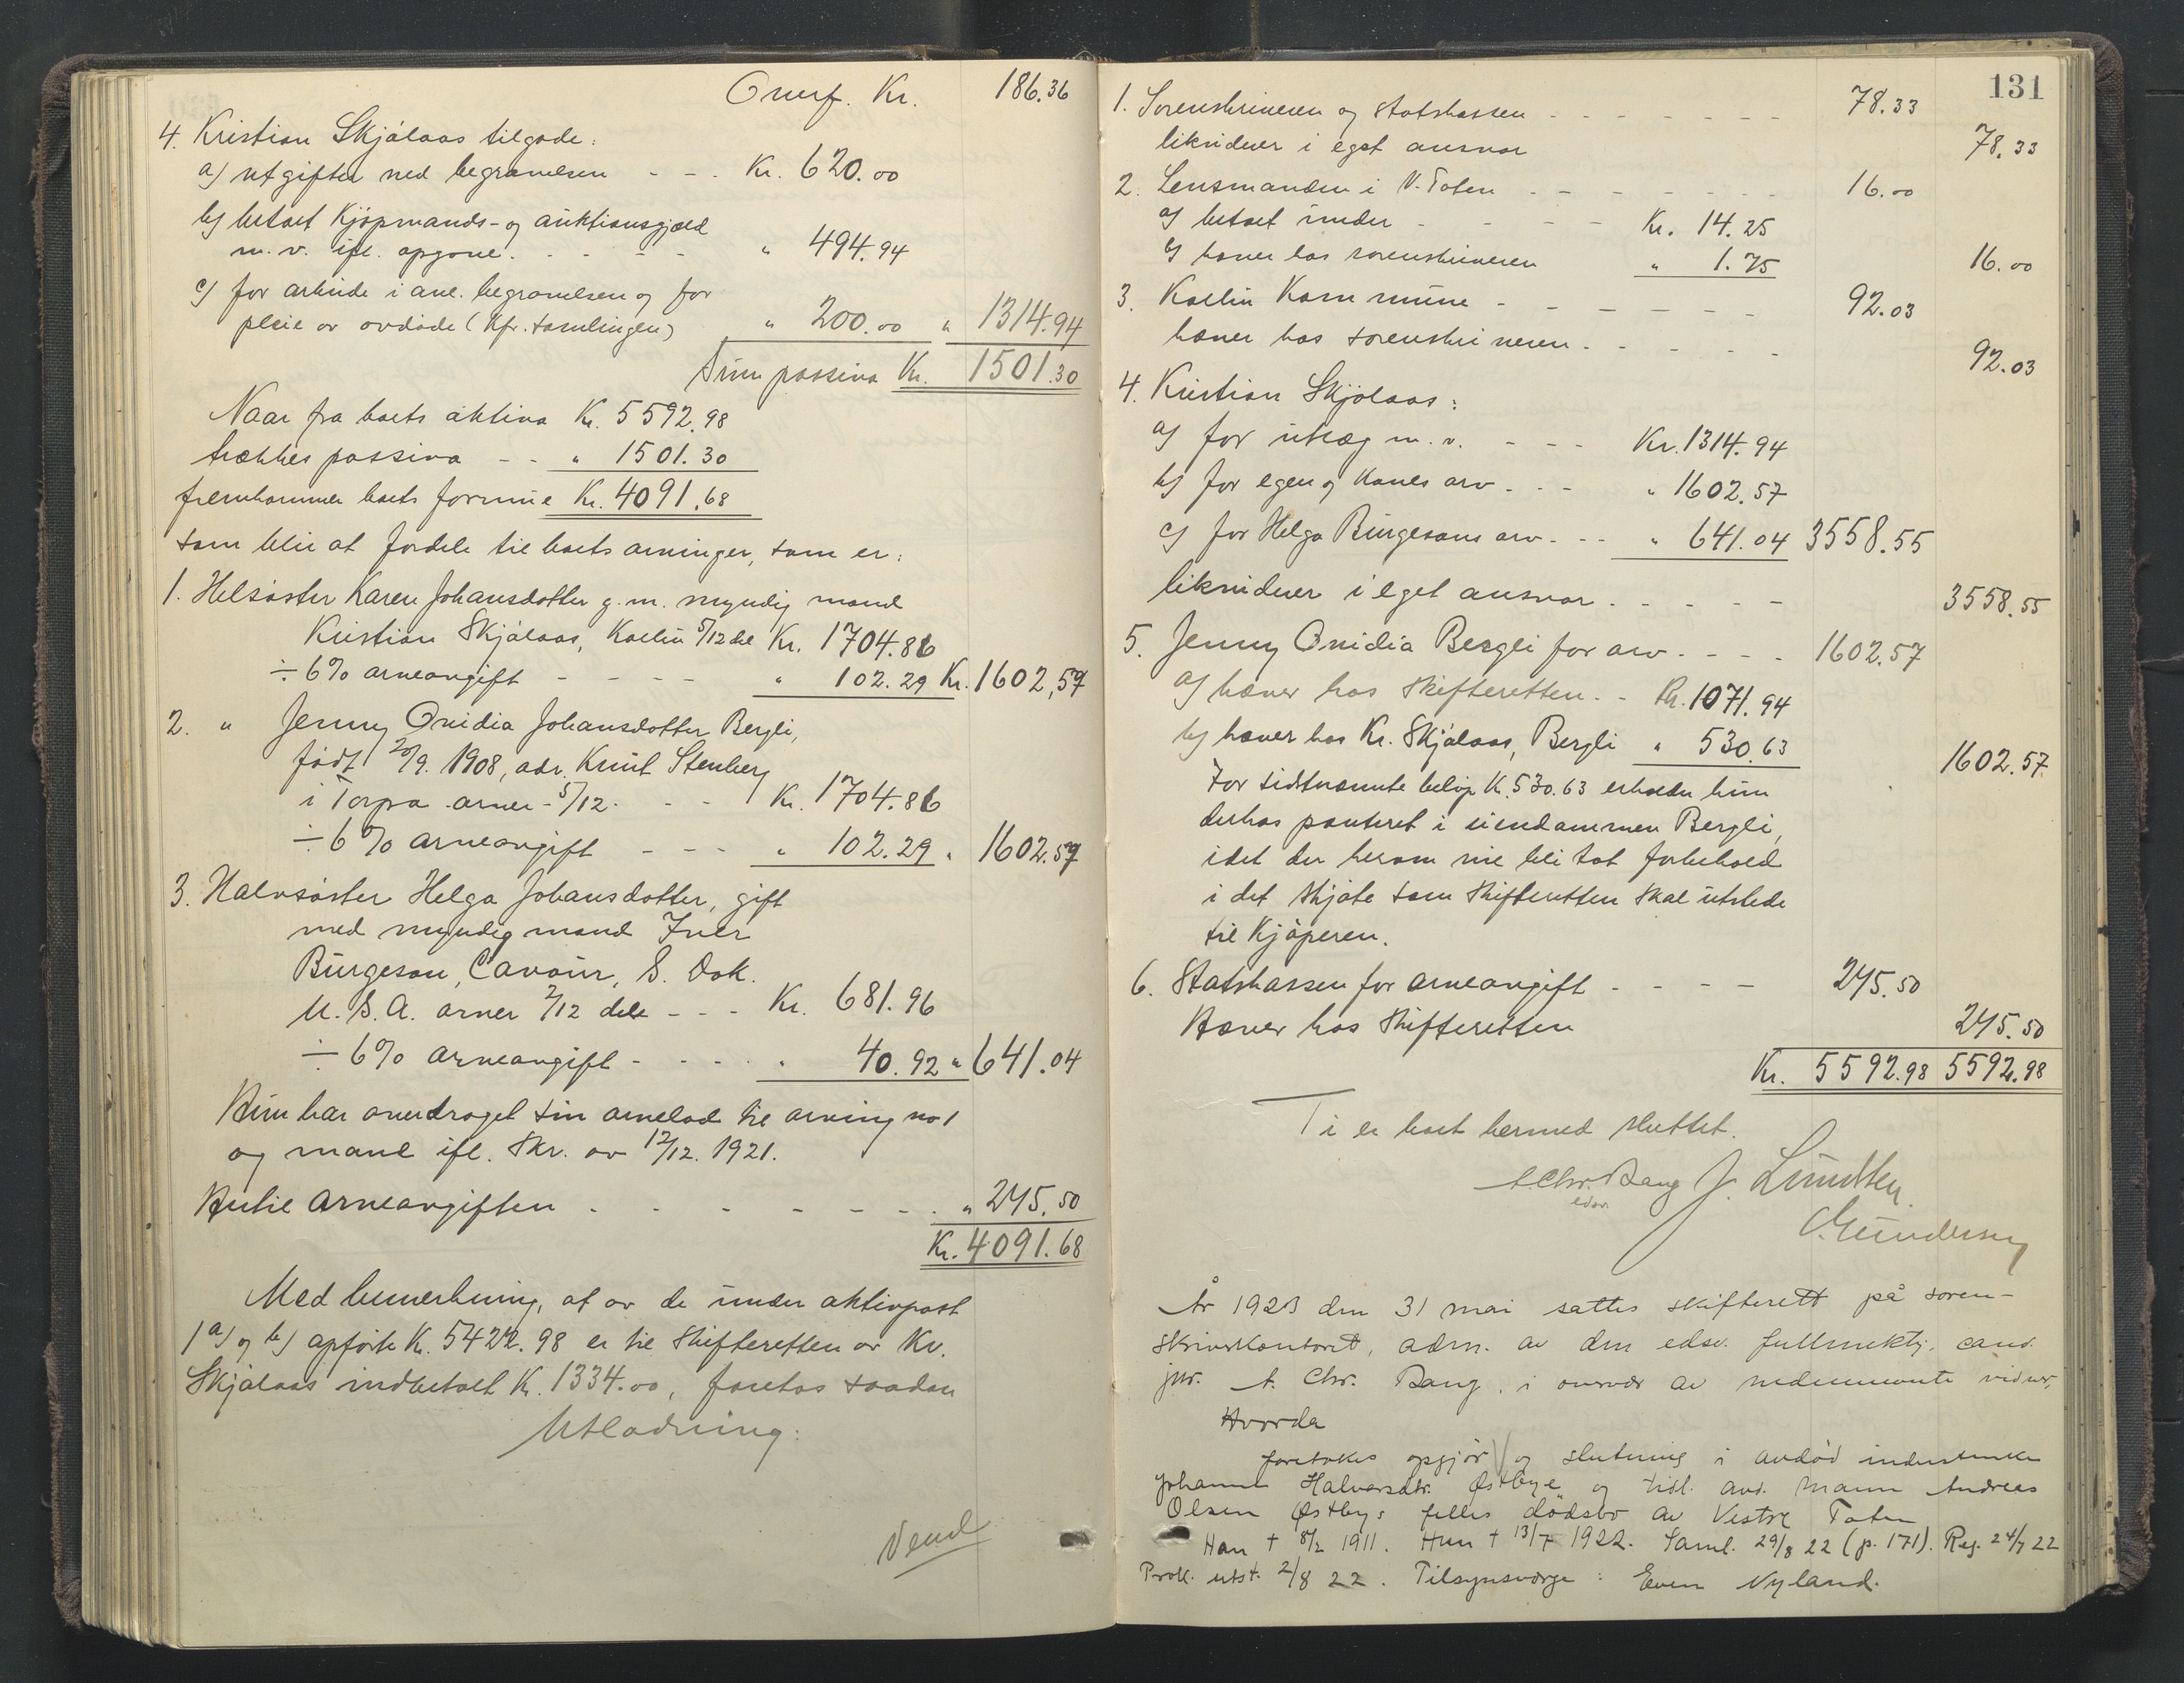 Overf. Kr. 186.36
4. Kristian Skjölaas tilgode:
a) utgifter ved begravelsen - - - Kr. 620.00
b) betalt Kjöpmands- og auktionsgjæld
m.v. ifl. opgave. - - - " 494.94
c) for arbeide i anl. begravelsen og for
pleie av avdöde (kfr. samlingen) " 200.00 " 1314.94
Sum passiva Kr. 1501.30
Naar fra boets aktiva Kr. 5592.98
trækkes passiva - - " 1501.30
fremkommer boets formue Kr. 4091.68
som blir at fordele til boets arvinger, som er:
1. Helsöster Karen Johansdatter g.m. myndig mand
Kristian Skjölaas, Kolbu 5/12 del Kr. 1704.86
÷ 6% arveavgift - - - - " 102.29 Kr. 1602,57
2. " Jenny Ovidia Johansdotter Bergli,
født 20/9. 1908, adr. Knut Stenberg
i Torpa arver - 5/12. - - Kr. 1704.86
÷ 6% arveavgift - - - " 102.29 " 1602.57
3. Halvsöster Helga Johansdotter, gift
med myndig mand Iver
Burgeson, Cavour, S. Dak.
U.S.A. arver 2/12 dele - - - Kr. 681.96
÷ 6% arveavgift - - - - " 40.92 " 641.04
Hun har overdraget sin arvelod til arving no 1
og mand ifl. skr. av 12/12. 1921.
Hertil arveavgiften . - - - - - - " 245.50
Kr. 4091.68
Med bemerkning, at av de under aktivpost
1 a) og b) opförte K. 5422.98 er til skifteretten av Kr.
Skjölaas indbetalt K. 1334.00, foretas saadan
Utlodning:
Vend
131
1. Sorenskriveren og statskassen - - - - - - - 78.33
likviderer i eget ansvar 78.33
2. Lensmanden i V. Toten - - - - - - - 16.00
a) betalt under - - - - Kr. 14.25
b) hæver hos sorenskriveren " 1.75 16.00
3. Kolbu Kommune - - - - - - 92.03
hæver hos sorenskriveren - - - - - 92.03
4. Kristian Skjölaas:
a) for utlæg m.v. - - - Kr. 1314.94
b) for egen og Kones arv - - - " 1602.57
c) for Helga Burgesons arv - - - " 641.04 3558.55
likviderer i eget ansvar - - - - - 3558.55
5. Jenny Ovidia Bergli for arv - - - - 1602.57
a) hæver hos skifteretten. - Kr. 1071.94
b) hæver hos Kr. Skjölaas, Bergli " 530.63 1602.57
For sidstnævnte belöp K. 530.63 erholder hun
derhos panteret i eiendommen Bergli,
idet der herom vil bli tat forbehold
i det skjöte som skifteretten skal utstede
til Kjöperen.
6. Statskassen for arveavgift - - - - 245.50
Hæver hos skifteretten 245.50
Kr. 5592.98 5592.98
Ti er boet hermed sluttet.
A. Chr. Bang J. Lundsten
edsv. Gundersen
År 1923 den 31 mai sattes skifterett på soren-
skriverkontoret, adm. av den edsv. fullmektig, cand.
jur. A. Chr. Bang, i overvær av nedennevnte vidner,
Hvorda
foretokes opgjör og slutning i avdöd
Johanne Halvorsdtr. Østbye og tidl. avd. mann Andreas
Olsen Østbys felles dödsbo av Vestre Toten
Han † 8/2 1911. Hun † 13/7 1922. Saml. 29/8 22 (p. 171). Reg. 24/7 22
Prok. utst. 2/8 22. Tilsynsverge: Even Nyland.